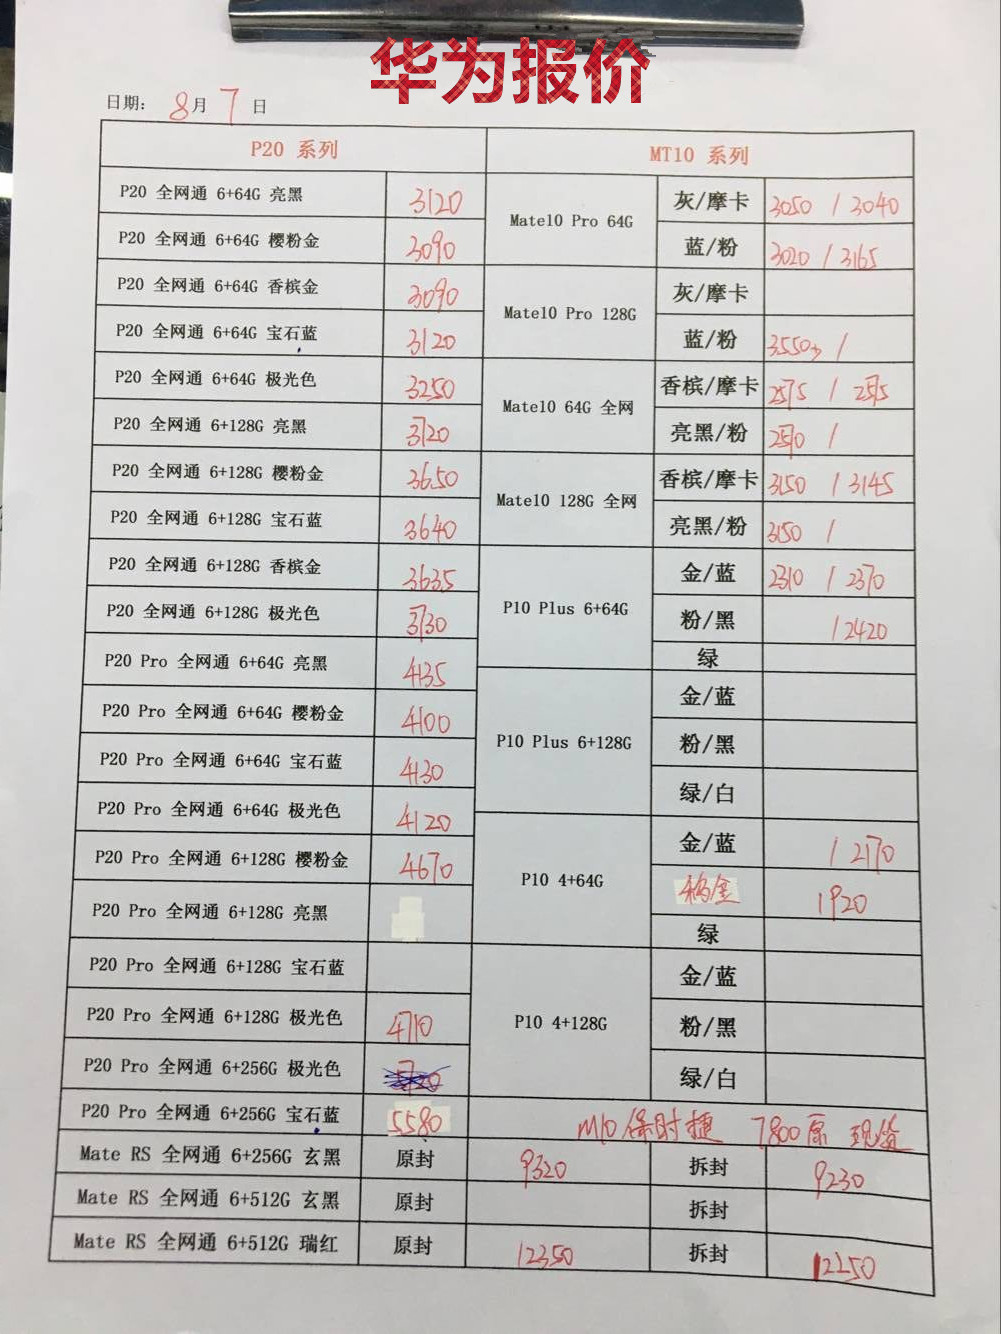 华为报价
日期： 8月 7 日
P20 系列 MT10 系列
P20 全网通 6+64G 亮黑 3120 Mate10 Pro 64G 灰/摩卡 3050 / 3040
P20 全网通 6+64G 樱粉金 3090 蓝/粉 3020 / 3165
P20 全网通 6+64G 香槟金 3090 Mate10 Pro 128G 灰/摩卡
P20 全网通 6+64G 宝石蓝 3120 蓝/粉 3550 /
P20 全网通 6+64G 极光色 3250 Mate10 64G 全网 香槟/摩卡 2575 / 2575
P20 全网通 6+128G 亮黑 3720 亮黑/粉 2570 /
P20 全网通 6+128G 樱粉金 3650 Mate10 128G 全网 香槟/摩卡 3150 / 3145
P20 全网通 6+128G 宝石蓝 3640 亮黑/粉 3150 /
P20 全网通 6+128G 香槟金 3635 P10 Plus 6+64G 金/蓝 2310 / 2370
P20 全网通 6+128G 极光色 3730 粉/黑 / 2420
绿
P20 Pro 全网通 6+64G 亮黑 4135 P10 Plus 6+128G 金/蓝
P20 Pro 全网通 6+64G 樱粉金 4100 粉/黑
P20 Pro 全网通 6+64G 宝石蓝 4130 绿/白
P20 Pro 全网通 6+64G 极光色 4120 P10 4+64G 金/蓝 / 2170
P20 Pro 全网通 6+128G 樱粉金 4670 金 1920
P20 Pro 全网通 6+128G 亮黑 绿
P20 Pro 全网通 6+128G 宝石蓝 P10 4+128G 金/蓝
P20 Pro 全网通 6+128G 极光色 4710 粉/黑
P20 Pro 全网通 6+256G 极光色 绿/白
P20 Pro 全网通 6+256G 宝石蓝 5580 M10 保时捷 7800 原 现货
Mate RS 全网通 6+256G 玄黑 原封 9320 拆封 9230
Mate RS 全网通 6+512G 玄黑 原封 拆封
Mate RS 全网通 6+512G 瑞红 原封 12350 拆封 12250